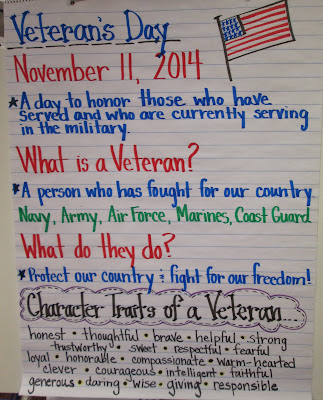 Veteran's Day
November 11, 2014
★ A day to honor those who have
served and who are currently serving
in the military.
What is a Veteran?
★ A person who has fought for our country
Navy, Army, Air Force, Marines, Coast Guard
What do they do?
★ Protect our country & fight for our freedom!
Character Traits of a Veteran...
honest • thoughtful • brave • helpful • strong
trustworthy • sweet • respectful • fearful
loyal • honorable • compassionate • warm-hearted
clever • courageous • intelligent • faithful
generous • daring • wise • giving • responsible